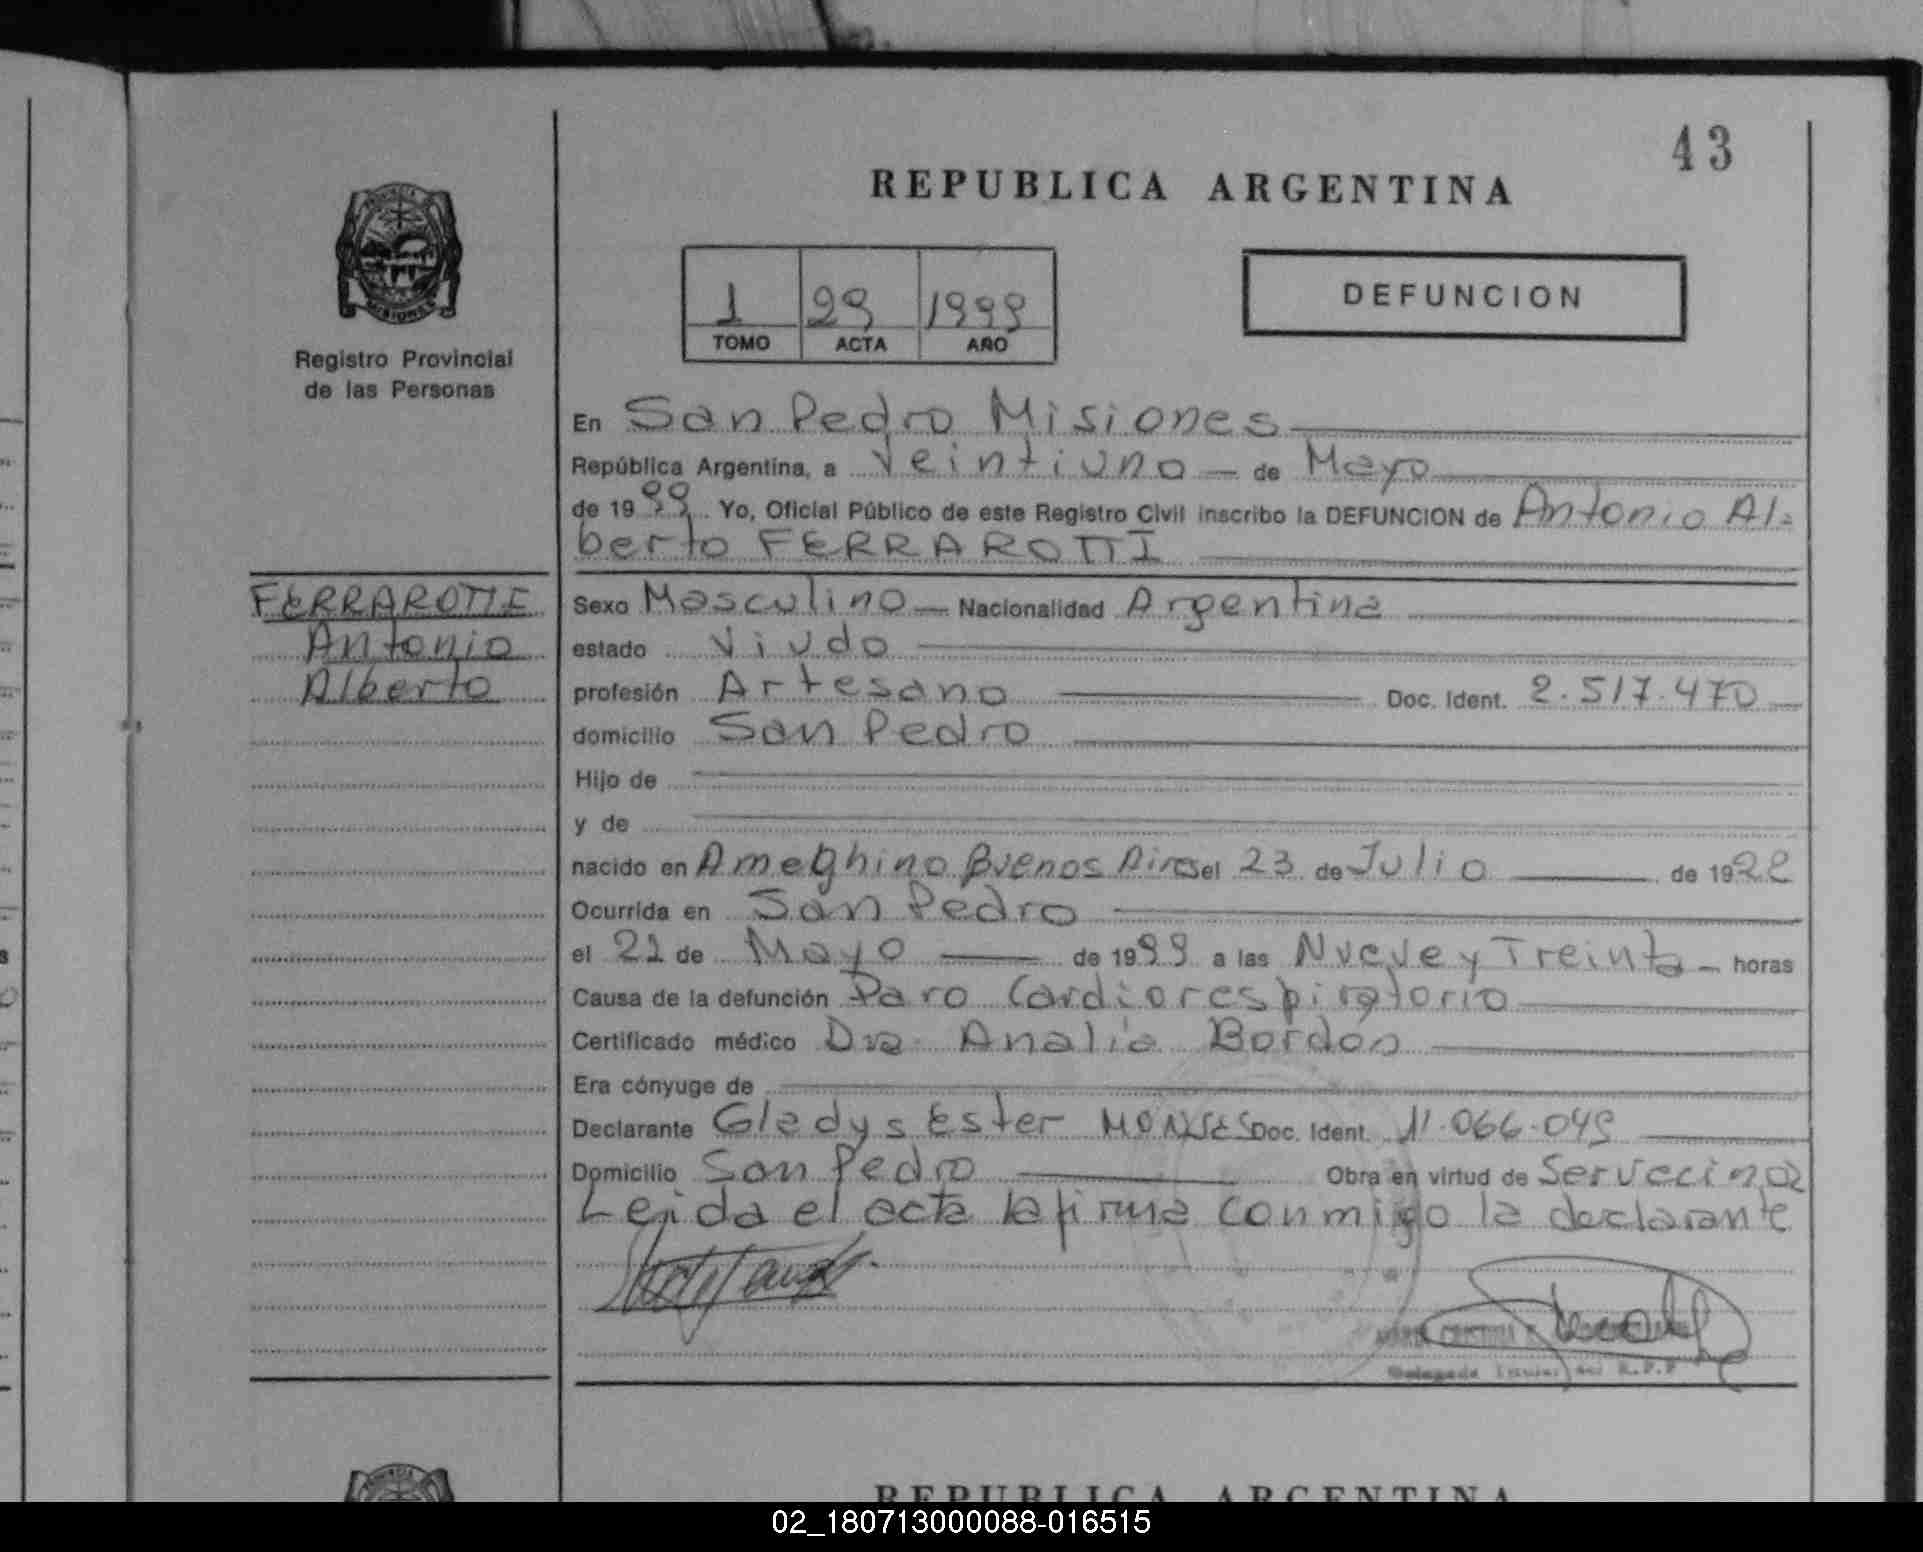 43
REPUBLICA ARGENTINA
PROVINCIA
MISIONES
Registro Provincial
de las Personas
1 29 1999
TOMO ACTA AÑO
DEFUNCION
En San Pedro Misiones
República Argentina, a Veintiuno de Mayo
de 1999 Yo, Oficial Público de este Registro Civil inscribo la DEFUNCION de Antonio Al=
berto FERRAROTTI
FERRAROTTI
Antonio
Alberto
Sexo Masculino Nacionalidad Argentina
estado Viudo
profesión Artesano Doc. Ident. 2.517.470
domicilio San Pedro
Hijo de
y de
nacido en Ameghino Buenos Aires el 23 de Julio de 1922
Ocurrida en San Pedro
el 21 de Mayo de 1999 a las Nueve y Treinta horas
Causa de la defunción Paro Cardiorespiratorio
Certificado médico Dra. Analía Bordón
Era cónyuge de
Declarante Gladys Ester Doc. Ident. 11.066.049
Domicilio San Pedro Obra en virtud de Ser vecina
Leida el acta la firma conmigo la declarante
Delegada Titular del R.P.P
REPUBLICA ARGENTINA
PROVINCIA
02_180713000088-016515